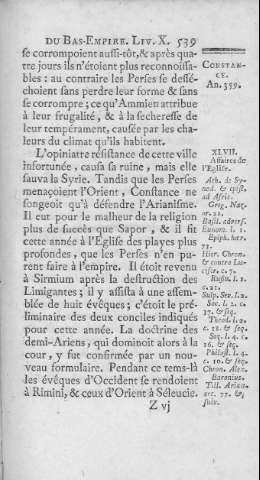 DU BAS-EMPIRE. LIV. X. 539
se corrompoient aussi-tôt, & après qua-
tre jours ils n'étoient plus reconnoissa-
bles : au contraire les Perses se dessé-
choient sans perdre leur forme & sans
se corrompre ; ce qu'Ammien attribue
à leur frugalité, & à la secheresse de
leur tempérament, causée par les cha-
leurs du climat qu'ils habitent.
L'opiniatre résistance de cette ville
infortunée, causa sa ruine, mais elle
sauva la Syrie. Tandis que les Perses
menaçoient l'Orient, Constance ne
songeoit qu'à défendre l'Arianisme.
Il eut pour le malheur de la religion
plus de succès que Sapor, & il fit
cette année à l'Église des playes plus
profondes, que les Perses n'en pu-
rent faire à l'empire. Il étoit revenu
à Sirmium après la destruction des
Limigantes ; il y assista à une assem-
blée de huit évêques ; c'étoit le pré-
liminaire des deux conciles indiqués
pour cette année. La doctrine des
demi-Ariens, qui dominoit alors à la
cour, y fut confirmée par un nou-
veau formulaire. Pendant ce tems-là
les évêques d'Occident se rendoient
à Rimini, & ceux d'Orient à Séleucie.
Z vj
CONSTAN-
CE.
An. 359.
XLVII.
Affaires de
l'Eglise.
Ath. de Sy-
nod. & epist.
ad Afric.
Greg. Naz.
or. 21.
Basil. advers.
Eunom. l. 1.
Epiph. hær.
73.
Hier. Chron.
& contra Lu-
cif. c. 7.
Rufin. l. 1.
c. 21.
Sulp. Sev. l. 2.
Soc. l. 2. c.
37. & seq.
Theod. l. 2.
c. 18. & seq.
Soz. l. 4. c.
16. & seq.
Philost. l. 4.
c. 10. & seq.
Chron. Alex.
Baronius.
Till. Arian.
art. 77. &
suiv.